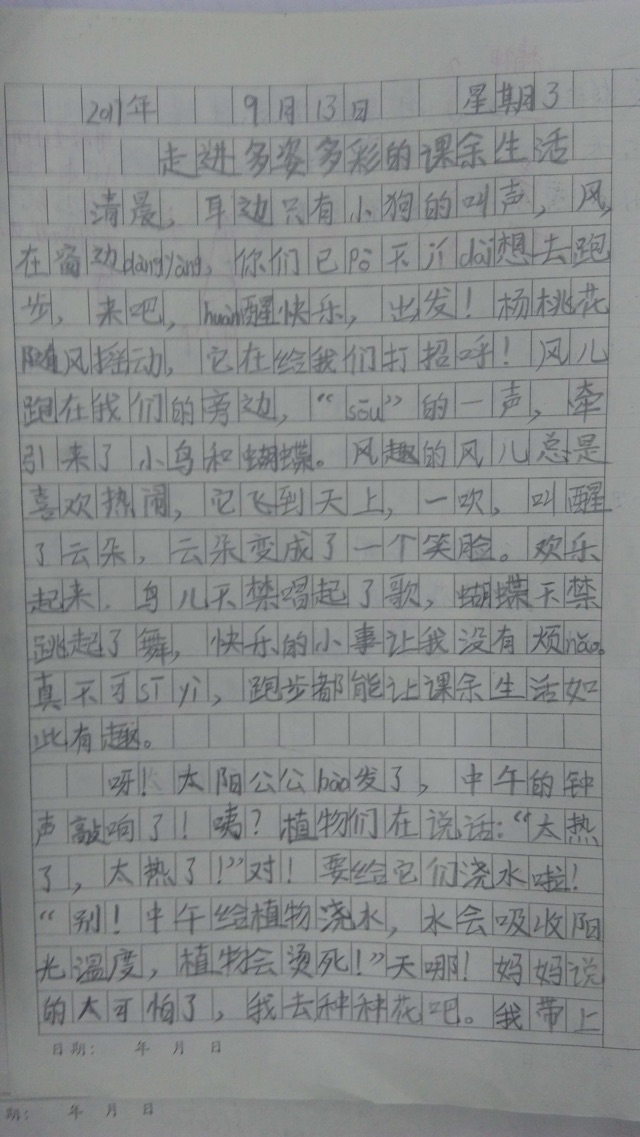 2017年 9月13日 星期3
走进多姿多彩的课余生活
清晨，耳边只有小狗的叫声，风，
在窗边dàngyàng，你们已pò不jí dài想去跑
步，来吧，huàn醒快乐，出发！杨桃花
随风摇动，它在给我们打招呼！风儿
跑在我们的旁边，“sōu”的一声，牵
引来了小鸟和蝴蝶。风趣的风儿总是
喜欢热闹，它飞到天上，一吹，叫醒
了云朵，云朵变成了一个笑脸。欢乐
起来，鸟儿不禁唱起了歌，蝴蝶不禁
跳起了舞，快乐的小事让我没有烦nǎo。
真不可sī yì，跑步都能让课余生活如
此有趣。
呀！太阳公公bào发了，中午的钟
声敲响了！咦？植物们在说话：“太热
了，太热了！”对！要给它们浇水啦！
“别！中午给植物浇水，水会吸收阳
光温度，植物会烫死！”天哪！妈妈说
的太可怕了，我去种种花吧。我带上
日期： 年 月 日
期： 年 月 日